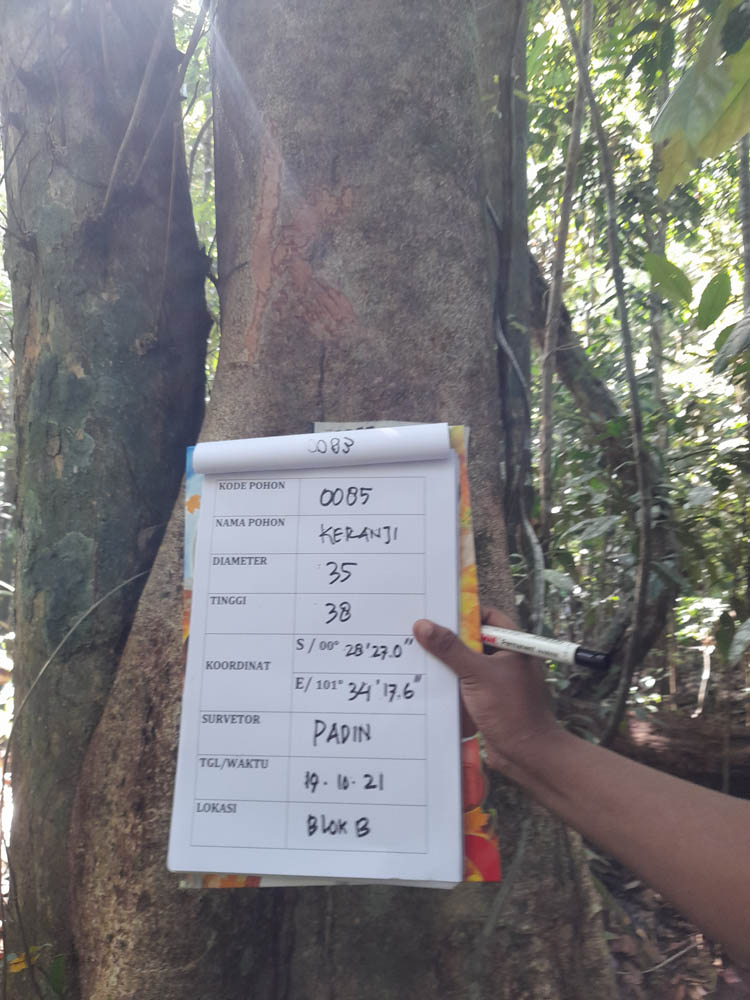 0083
KODE POHON 0085
NAMA POHON KERANJI
DIAMETER 35
TINGGI 38
KOORDINAT S / 00° 28'27.0"
E/ 101° 34'17.6"
SURVETOR PADIN
TGL/WAKTU 19-10-21
LOKASI BLOK B
Permanent